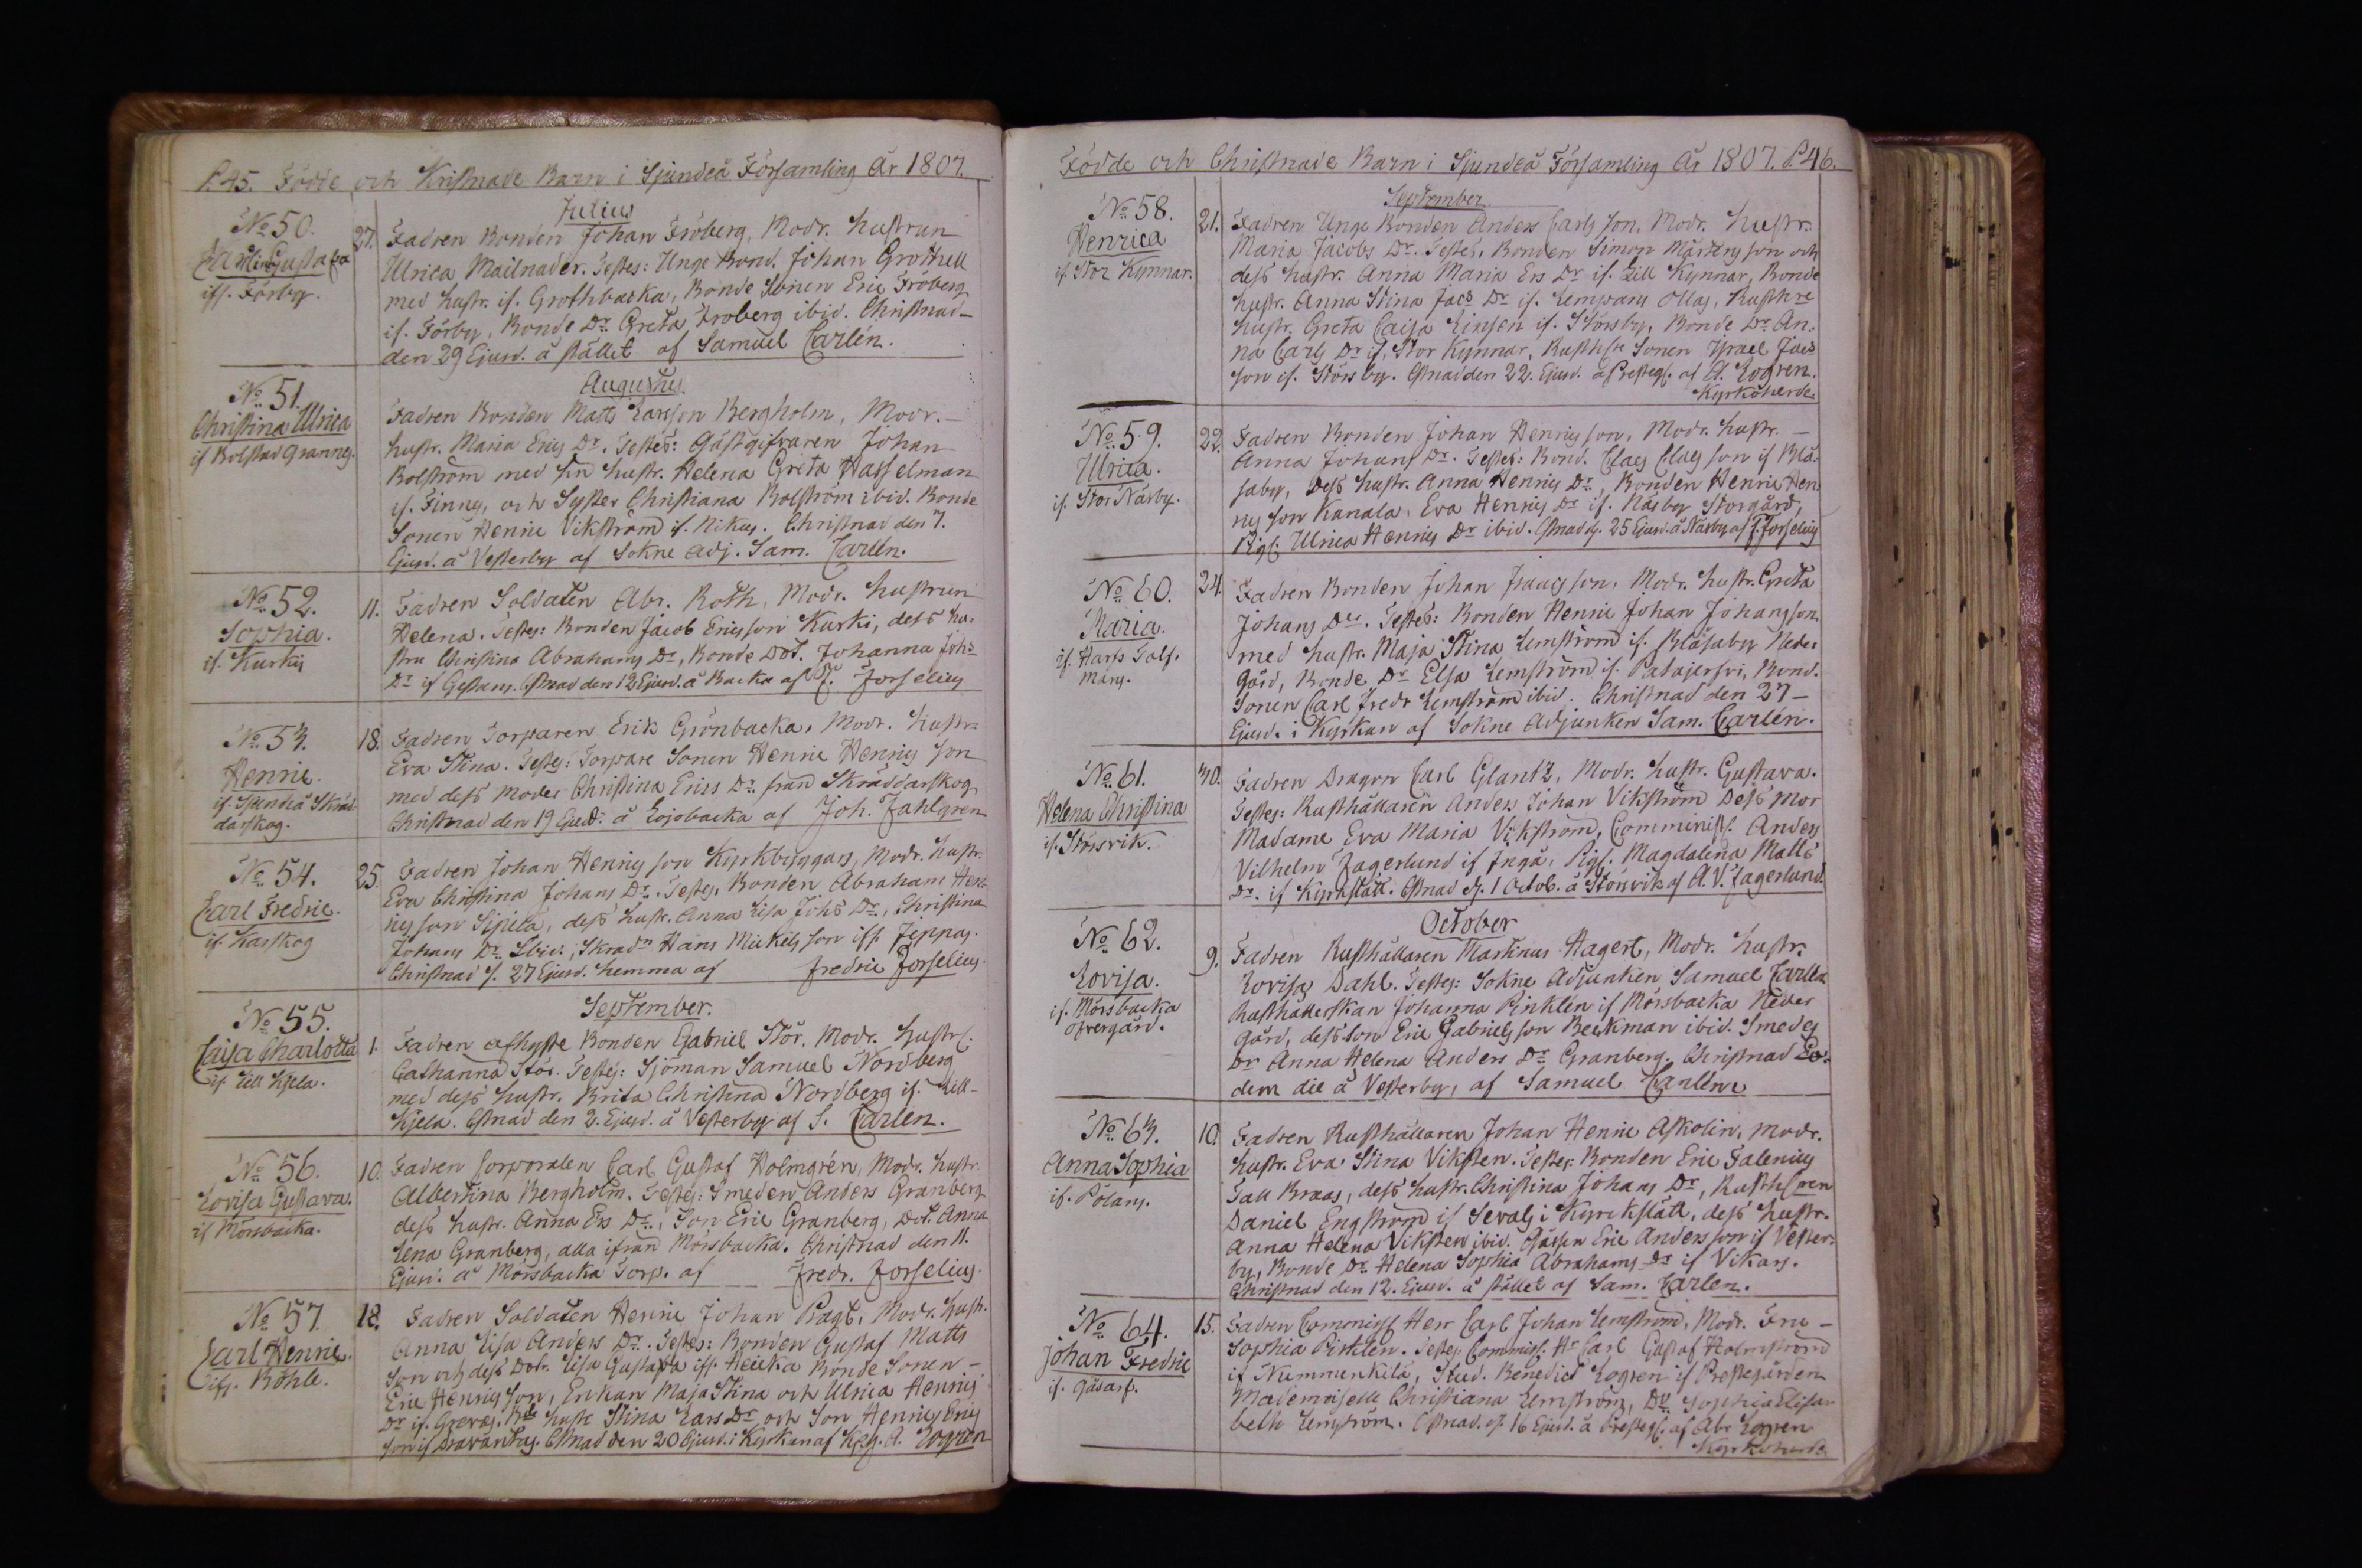 P. 45. Födde och Kristnade Barn i Sjundeå Församling År 1807.
Julius
No 50.
ifs. Förby.
27. Fadren Bonden Johan Fröberg, Modr. hustrun
Ulrica Mailnader. Testes: Unge Bond. Johan Grothell
med hustr. if. Grothbacka, Bonde Sonen Eric Fröberg
if. Förby, Bonde Dr. Greta Froberg ibid. Christnad
den 29 Ejusd. å stället af Samuel Carlén.
Augustus
No 51.
Christina Ulrica
if Bolstad Granns.
Fadren Bonden Matts Larsson Bergholm, Modr.
hustr. Maria Erics Dr. Testes: Gästgifvaren Johan
Bolström med sin hustr. Helena Greta Hasselman
if. Finns, och Syster Christiana Bolström ibid. Bonde
Sonen Henric Vikström if. Nikus. Christnad den 7.
Ejusd. å Vesterby af Sokne adj. Sam. Carlén.
No 52.
Sophia.
if. Kurkis
11. Fadren Soldaten Abr. Roth, Modr. hustrun
Helena. Testes: Bonden Jacob Ericsson Kurki, dess hu-
stru Christina Abrahams Dr, Bonde Dot. Johanna Johs
Dr if Gestans. Chnad den 12 Ejusd. å Backa af F. Forselius
No 53.
Henric.
if. Sjundeå Skräd-
darskog.
18. Fadren Torparen Erik Grönbacka, Modr. hustr.
Eva Stina. Testes: Torpare Sonen Henric Henrics son
med dess Moder Christina Erics Dr. från Skräddarskog
Christnad den 19 Ejusd. å Lojobacka af Joh. Fahlgren
No 54.
Carl Fredric.
if. Karskog
25. Fadren Johan Henrics son Kyrkbyggars, Modr. hustr.
Eva Christina Johans Dr. Testes. Bonden Abraham Hen-
rics son Sipilä, dess hustr. Anna Lisa Johs Dr., Christina
Johans Dr. Ibid., Skradn Hans Mickels son ifs. Jeppas.
Christnad d. 27 Ejusd. hemma af Fredric Forselius.
September.
No 55.
Caisa Charlotta
if Lill Kjela.
1. Fadren afhyste Bonden Gabriel Stör. Modr. hustr.
Catharina Stör. Testes: Sjöman Samuel Nordberg
med dess hustr. Brita Christina Nordberg if. Lill-
Kjela. Chnad den 2. Ejusd. å Vesterby af S. Carlen.
No 56.
Lovisa Gustava.
if Mörsbacka.
10. Fadren Corporalen Carl Gustaf Holmgrén, Modr. hustr.
Albertina Bergholm. Testes: Smeden Anders Granberg
dess hustr. Anna Ers Dr., Son Eric Granberg, Dot. Anna
Lena Granberg, alla ifrån Mörsbacka. Christnad den 11.
Ejusd. å Mörsbacka Torp. af Fredr. Forselius.
No 57.
Carl Henric.
ifs. Böhle.
18. Fadren Soldaten Henric Johan Pragt, Modr. hustr.
Anna Lisa Anders Dr. Testes: Bonden Gustaf Matts
son och dess Dotr. Lisa Gustava ifs. Heicka Bonde Sonen
Eric Henrics son, Enkan Maja Stina och Ulrica Henrics
Dr if. Grevas. hustr Stina Lars Dr och Son Henric Erics
son if Dravantas. Chnad den 20 Ejusd. i Kyrkan af A. Logren
Födde och Christnade Barn i Sjundeå Församling År 1807. P. 46.
September.
No 58.
Henrica
if. Stor Kynnar.
21. Fadren Unge Bonden Anders Carls son, Modr. hustr.
Maria Jacobs Dr. Testes. Bonden Simon Mårtens son och
dess hustr. Anna Maria Ers Dr if. Lill Kynnar, Bonde
hustr. Anna Stina Jacs Dr if. Lempans Ollas, Rusthre
hustr. Greta Caisa Linsen if. Störsby, Bonde Dr. An-
na Carls Dr if. Stor Kynnar, Rusthre Sonen Israel Jacs
son if. Störsby. Chnad den 22. Ejusd. å Presteg. af A. Logren.
Kyrkoherde.
No 59.
Ulrica.
if. Stor Närby.
22. Fadren Bonden Johan Henrics son, Modr. hustr.
Anna Johans Dr. Testes: Bond. Claes Claes son if Blå-
saby, Dess hustr. Anna Henrics Dr, Bonden Henric Hen-
rics son Kanala, Eva Henrics Dr if. Näsby Storgård,
Pigs. Ulrica Henrics Dr ibid. Chnad d. 25 Ejusd. å Närby af F. Forselius
No 60.
Maria.
if. Harfs Tolf-
mans.
24. Fadren Bonden Johan Isaacs son, Modr. hustr. Greta
Johans Dr. Testes: Bonden Henric Johan Johansson
med hustr. Maja Stina Lemström if. Blåsaby Neder
gård, Bonde Dr Elsa Lemström if. Patajerfvi, Bond.
Sonen Carl Fredr Lemström ibid. Christnad den 27
Ejusd. i Kyrkan af Sokne Adjunken Sam. Carlén.
No 61.
Helena Christina
if. Störsvik.
30. Fadren Dragon Carl Glantz, Modr. hustr. Gustava.
Testes: Rusthållaren Anders Johan Vikström Dess Mor
Madame Eva Maria Vikström, Comminist. Anders
Vilhelm Fagerlund if Ingå, Pigs. Magdalena Matts
Dr. if Kyrkslätt. Chnad d. 1 Octob. å Störsvik af A. V. Fagerlund.
October
No 62.
Lovisa.
if. Mörsbacka
öfvergård.
9. Fadren Rusthållaren Martinus Hagert, Modr. hustr.
Lovisa Dahl. Testes: Sokne Adjunken Samuel Carlén
Rusthållerskan Johanna Pinklén if Mörsbacka Neder
gård, dess son Eric Gabriels son Beckman ibid. Smedes
Dr Anna Helena Anders Dr Granberg. Christnad Eo-
dem die å Vesterby, af Samuel Carlén
No 63.
Anna Sophia
if. Pölans.
10. Fadren Rusthållaren Johan Henric Askolin, Modr.
hustr. Eva Stina Viksten. Testes: Bonden Eric Falenius
Tall Braas, dess hustr. Christina Johans Dr, Rusthren
Daniel Engström if Sevals i Kyrckslätt, dess hustr.
Anna Helena Viksten ibid. Eric Anders son if Vester-
by, Bonde Dr Helena Sophia Abrahams Dr if Vikars.
Christnad den 12. Ejusd. å stället af Sam. Carlen.
No 64.
Johan Fredric
if. Gåsars.
15. Fadren Commiss Herr Carl Johan Lemström, Modr. Fru
Sophia Pinklen. Testes: Commiss. Hr Carl Gustaf Holmström
if Nummenkilä, Stud. Benedict Logren if Prestegården
Mademoiselle Christiana Lemström, Do Sophia Elisa-
beth Lemström. Chnad. d. 16 Ejusd. å Presteg. af Abr Logren
Kyrkoherde